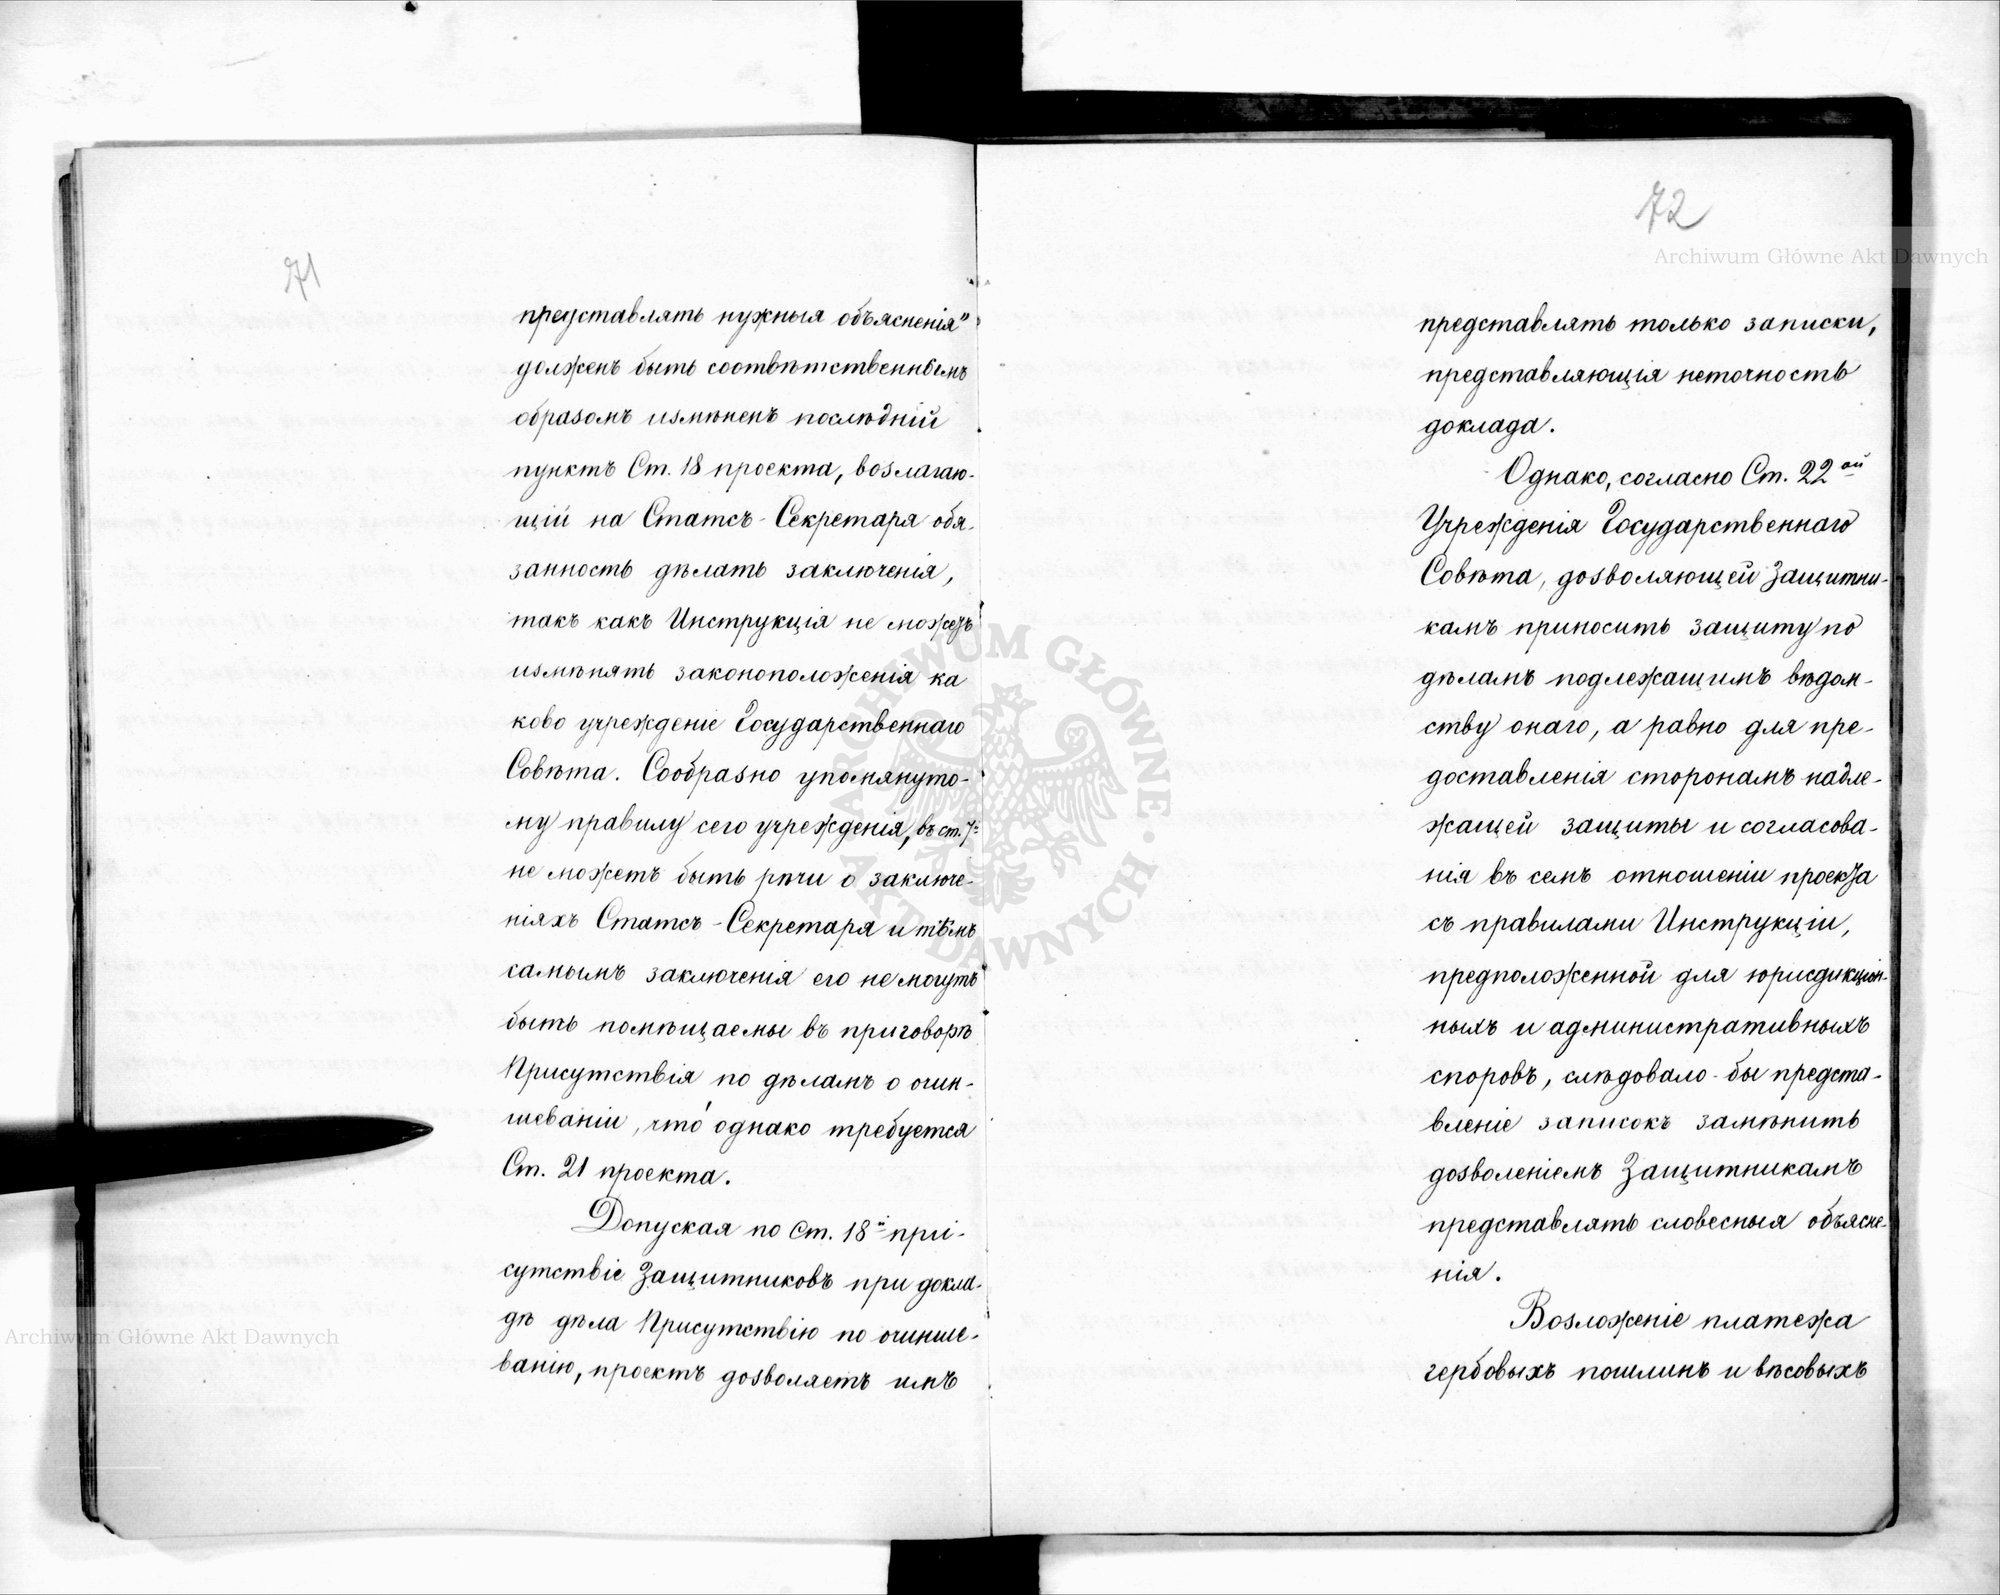 71
представлять нужныя объясненія"
долженъ быть соотвѣтственнымъ
образомъ измѣненъ послѣдній
пунктъ Ст. 18 проекта, возлагаю-
щій на Статсъ-Секретаря обя-
занность дѣлать заключенія,
такъ какъ Инструкція не можетъ
измѣнять законоположенія ка
ково учрежденіе Государственнаго
Совѣта. Сообразно упомянуто-
му правилу сего учрежденія, въ ст. 7й
не можетъ быть рѣчи о заключе-
ніяхъ Статсъ-Секретаря и тѣмъ
самымъ заключенія его не могутъ
быть помѣщаемы въ приговоръ
Присутствія по дѣламъ о очин-
шеваніи, что́ однако требуется
Ст. 21 проекта.
Допуская по Ст. 18й прі-
сутствіе Защитниковъ при докла-
дѣ дѣла Присутствію по очинше-
ванію, проектъ дозволяетъ имъ
72
представлять только записки,
представляющія неточность
доклада.
Однако, согласно Ст. 22ой
Учрежденія Государственнаго
Совѣта, дозволяющей Защитни-
камъ приносить защиту по
дѣламъ подлежащимъ вѣдом-
ству онаго, а равно для пре-
доставленія сторонамъ надле-
жащей защиты и согласова-
нія въ семъ отношеніи проекта
съ правилами Инструкціи,
предположенной для юрисдикціон-
ныхъ и административныхъ
споровъ, слѣдовало-бы предста-
вленіе записокъ замѣнить
дозволеніемъ Защитникамъ
представлять словесныя объясне-
нія.
Возложеніе платежа
гербовыхъ пошлинъ и вѣсовыхъ
Archiwum Główne Akt Dawnych
ARCHIWUM GŁÓWNE · AKT DAWNYCH ·
Archiwum Główne Akt Dawnych